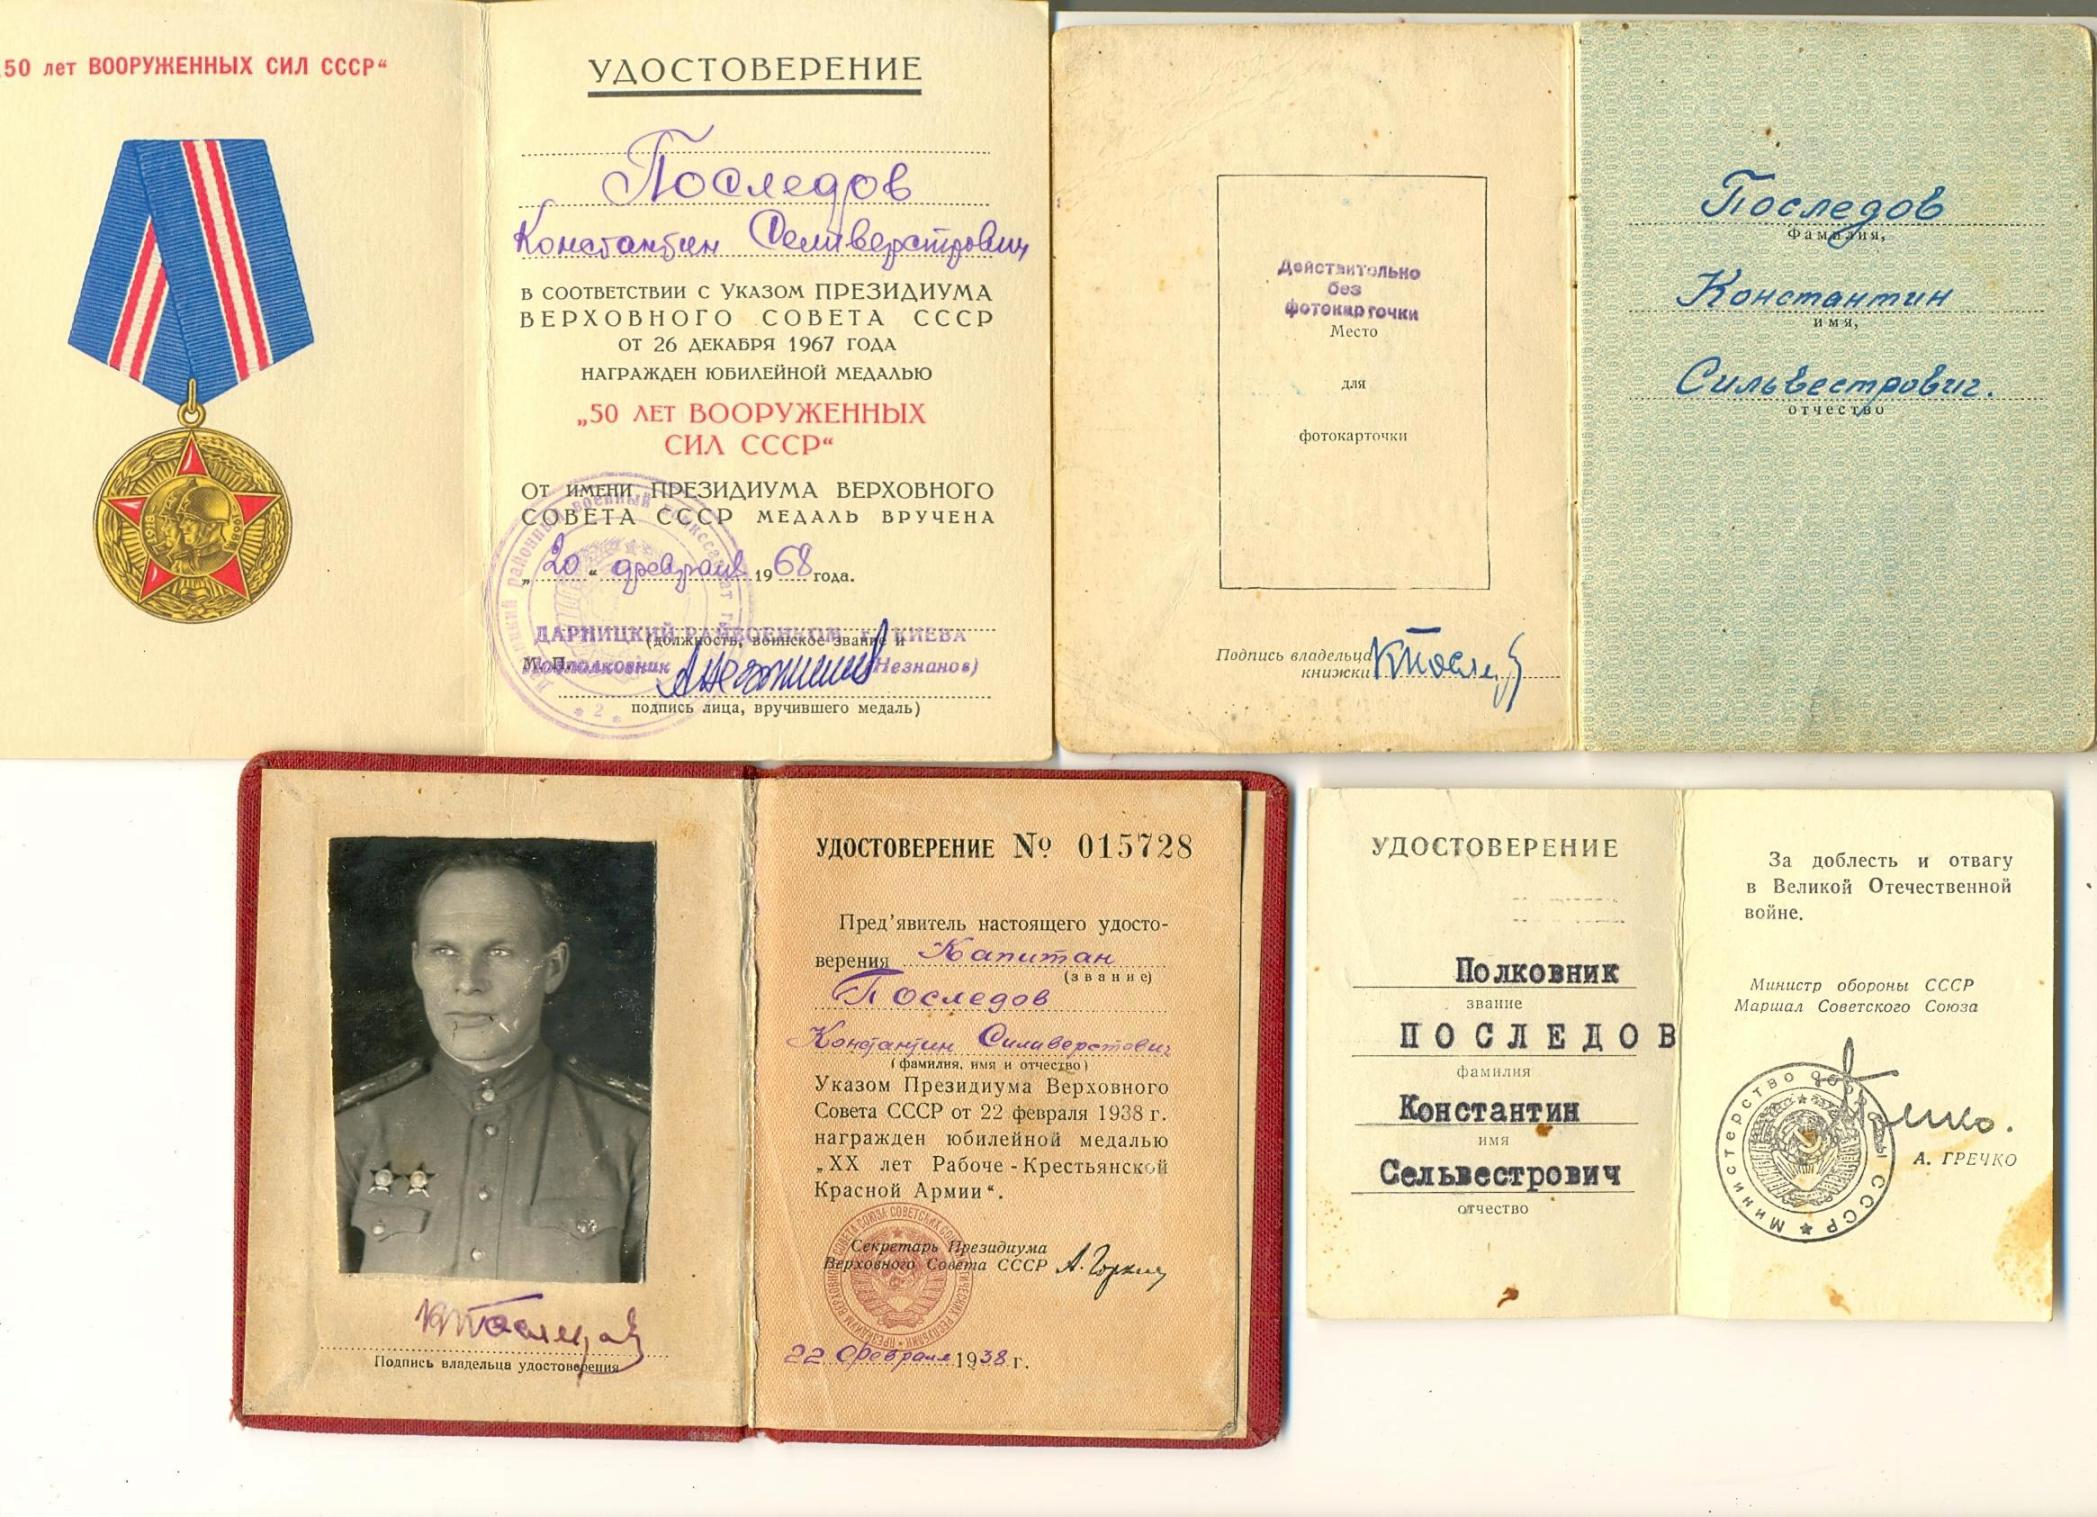 50 лет ВООРУЖЕННЫХ СИЛ СССР“
УДОСТОВЕРЕНИЕ
Последов
Константин Селиверстрович
В СООТВЕТСТВИИ С УКАЗОМ ПРЕЗИДИУМА
ВЕРХОВНОГО СОВЕТА СССР
ОТ 26 ДЕКАБРЯ 1967 ГОДА
НАГРАЖДЕН ЮБИЛЕЙНОЙ МЕДАЛЬЮ
„50 ЛЕТ ВООРУЖЕННЫХ
СИЛ СССР“
ОТ ИМЕНИ ПРЕЗИДИУМА ВЕРХОВНОГО
СОВЕТА СССР МЕДАЛЬ ВРУЧЕНА
„20“ февраля 1968 года.
ДАРНИЦКИЙ РАЙВОЕНКОМ г. КИЕВА
(должность, воинское звание и
М. П.
Подполковник
(Незнанов)
подпись лица, вручившего медаль)
Действительно
без
фотокарточки
Место
для
фотокарточки
Подпись владельца
книжки
Последов
Фамилия,
Константин
имя,
Сильвестрович.
отчество
Подпись владельца удостоверения
УДОСТОВЕРЕНИЕ № 015728
Пред'явитель настоящего удосто-
верения Капитан
(звание)
Последов
Константин Силиверстович
(фамилия, имя и отчество)
Указом Президиума Верховного
Совета СССР от 22 февраля 1938 г.
награжден юбилейной медалью
„XX лет Рабоче-Крестьянской
Красной Армии“.
Секретарь Президиума
Верховного Совета СССР А. Горкин
22 февраля 1938 г.
УДОСТОВЕРЕНИЕ
Полковник
звание
ПОСЛЕДОВ
фамилия
Константин
имя
Сельвестрович
отчество
За доблесть и отвагу
в Великой Отечественной
войне.
Министр обороны СССР
Маршал Советского Союза
Министерство обороны СССР
Гречко.
А. ГРЕЧКО